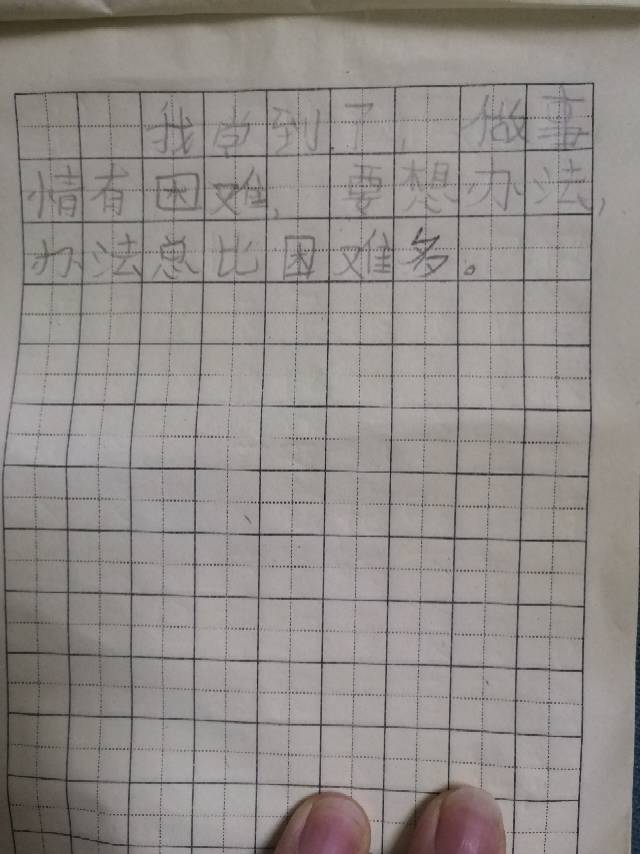 我学到了，做事
情有困难，要想办法，
办法总比困难多。